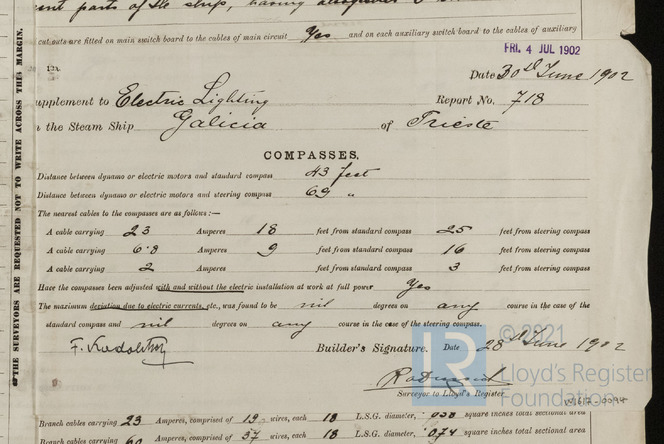 ent parts of the ship, having
cut outs are fitted on main switch board to the cables of main circuit Yes and on each auxiliary switch board to the cables of auxiliary
FRI. 4 JUL 1902
Date 30th June 1902
upplement to Electric Lighting Report No. 718
the Steam Ship Galicia of Trieste
COMPASSES.
Distance between dynamo or electric motors and standard compass 43 feet
Distance between dynamo or electric motors and steering compass 69 "
The nearest cables to the compasses are as follows:—
A cable carrying 23 Amperes 18 feet from standard compass 25 feet from steering compass
A cable carrying 6.8 Amperes 9 feet from standard compass 16 feet from steering compass
A cable carrying 2 Amperes feet from standard compass 3 feet from steering compass
Have the compasses been adjusted with and without the electric installation at work at full power Yes
The maximum deviation due to electric currents, etc., was found to be nil degrees on any course in the case of the
standard compass and nil degrees on any course in the case of the steering compass.
Builder's Signature. Date 28th June 1902
Surveyor to Lloyd's Register
THE SURVEYORS ARE REQUESTED NOT TO WRITE ACROSS THIS MARGIN.
© 2021
LR
Lloyd's Register
Foundation
W617-0094
Branch cables carrying 23 Amperes, comprised of 19 wires, each 18 L.S.G. diameter, .038 square inches total sectional area
Branch cables carrying 60 Amperes, comprised of 37 wires, each 18 L.S.G. diameter, .074 square inches total sectional area